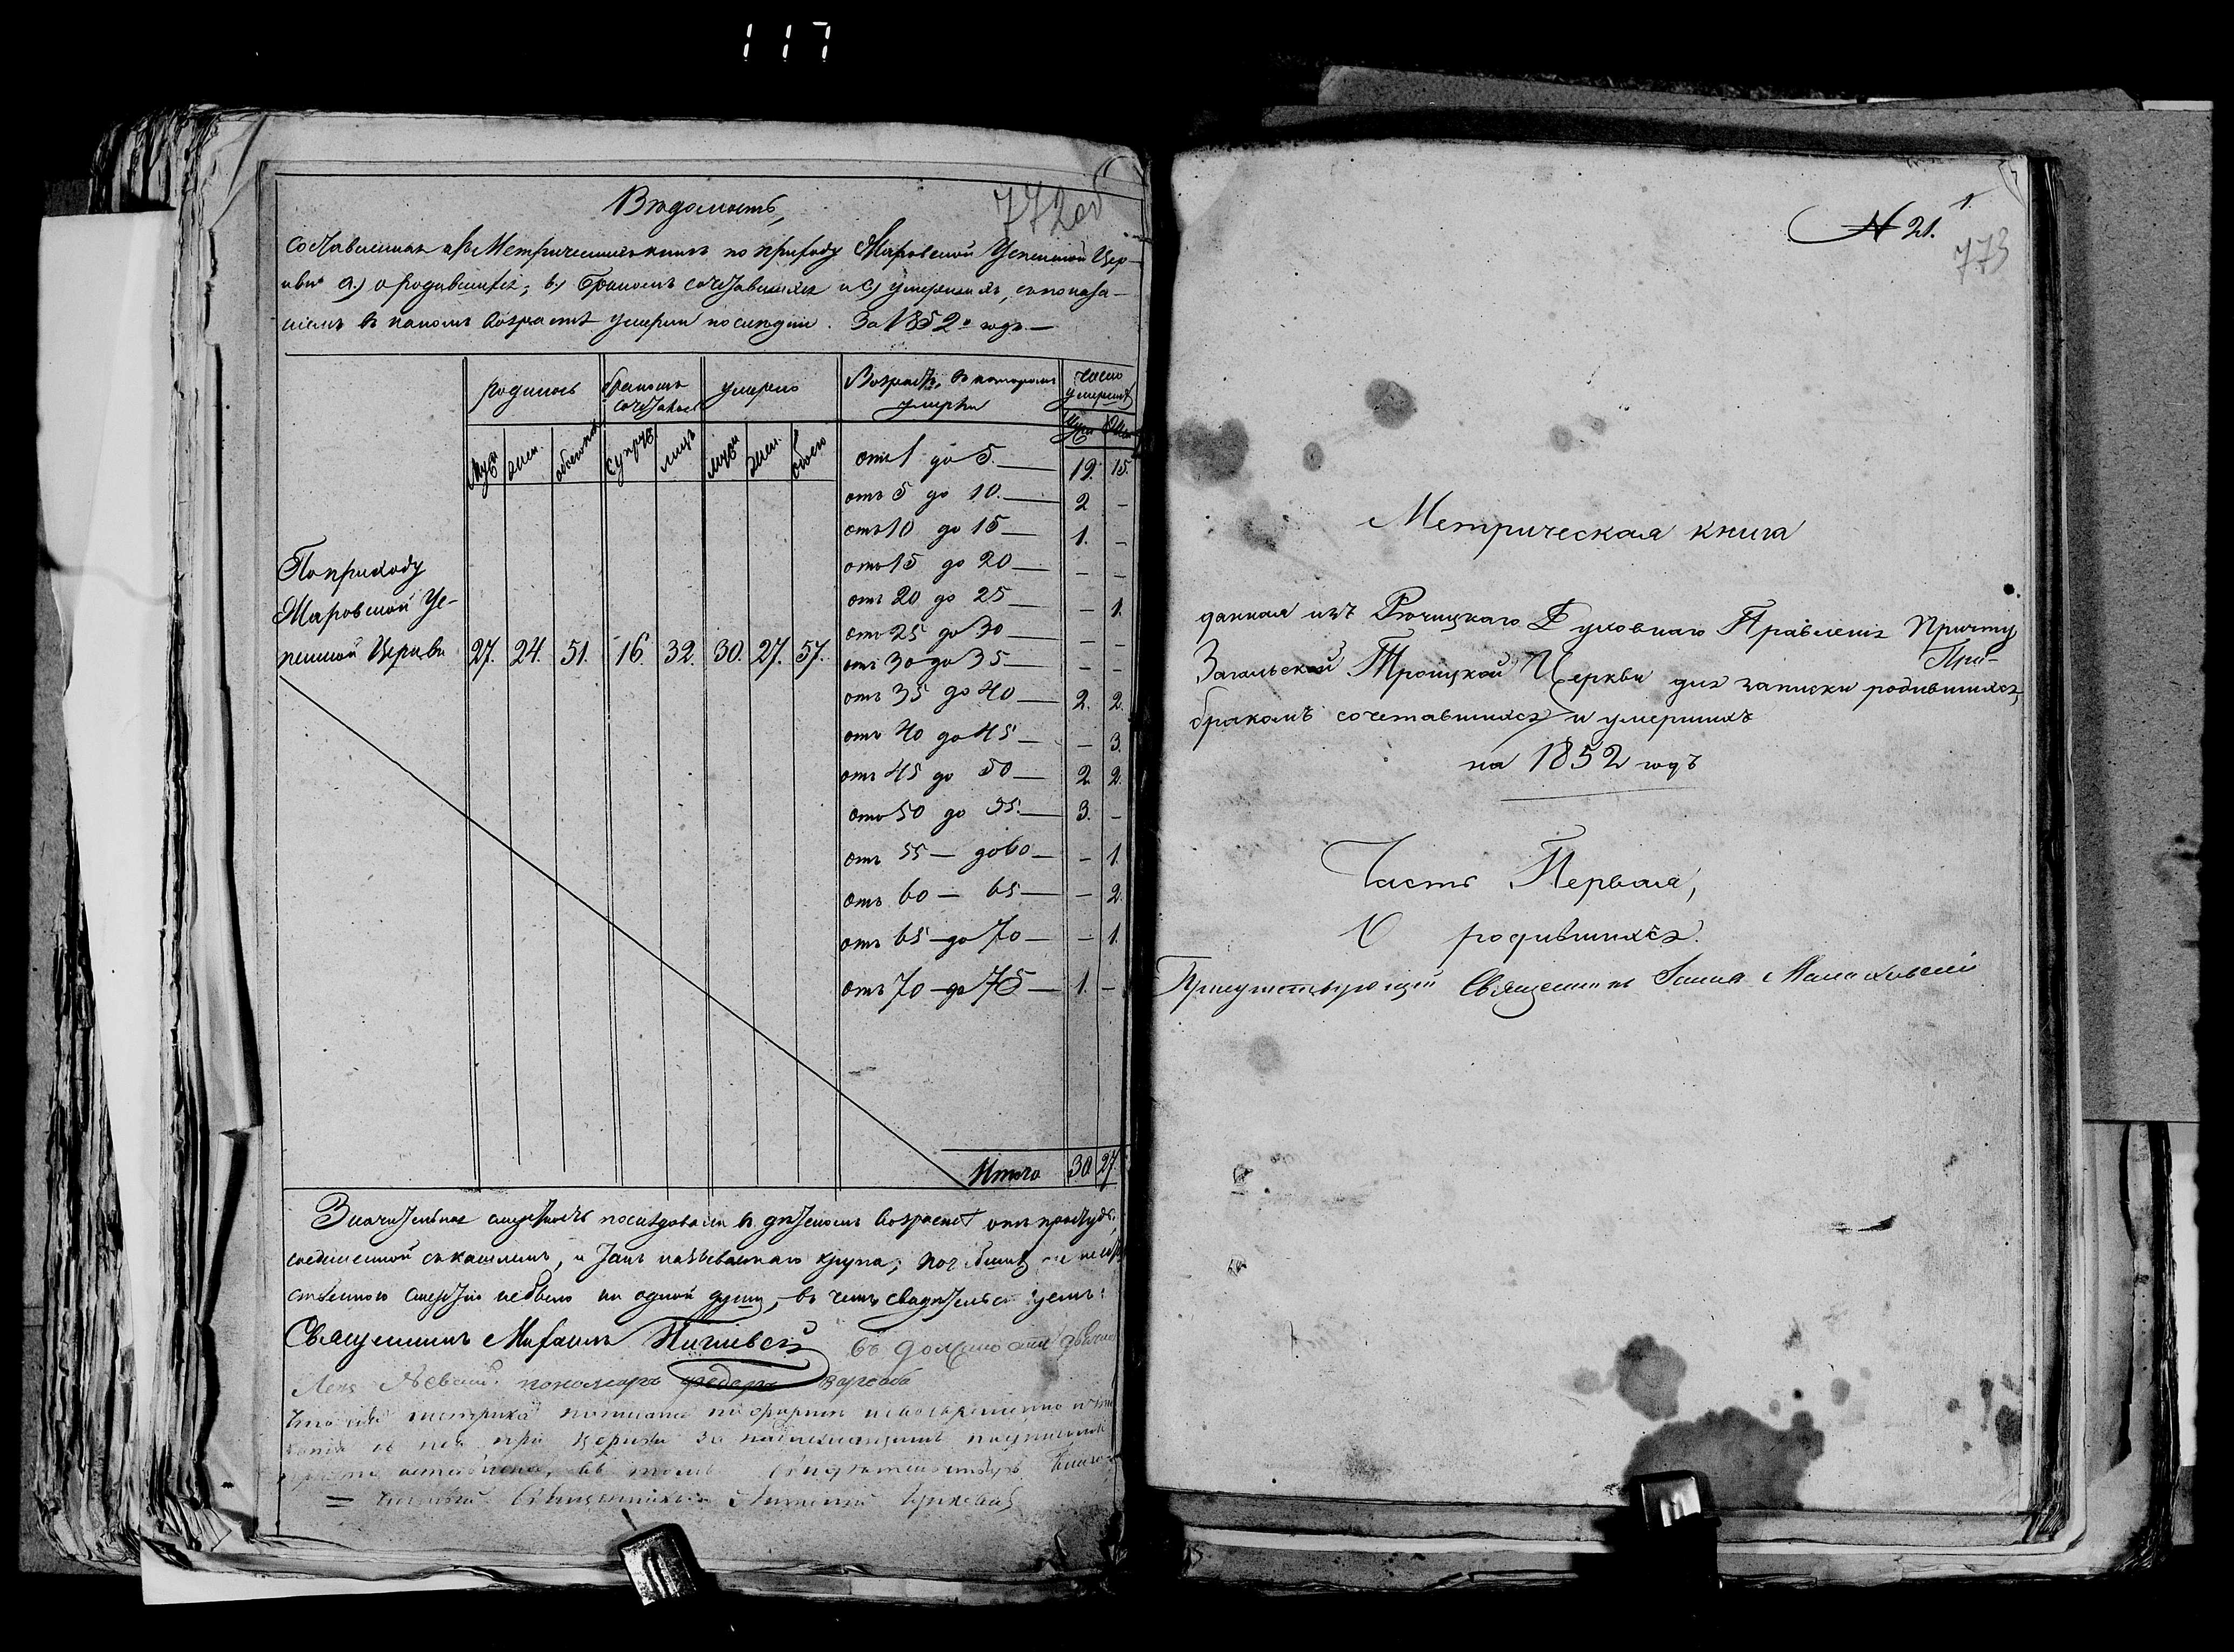 117
772об
Ведомость,
составленная изъ Метрическихъ книгъ по приходу Жаровской Успенской Цер-
кви a.) о родившихся; b.) бракомъ сочетавшихся и c.) умершихъ, съ показа-
ніемъ въ какомъ возрастѣ умерли последніе. За 1852й годъ.—
родилось бракомъ сочеталось умерло Возрастъ, въ которомъ умерли число умершихъ
муж. жен. обоего супруж. лицъ муж. жен. обоего Муж. Жен.
отъ 1 до 5. — 19. 15.
отъ 5 до 10. — 2 –
отъ 10 до 15 — 1. –
отъ 15 до 20 — – –
отъ 20 до 25 — – 1.
отъ 25 до 30 — – –
отъ 30 до 35 — – –
отъ 35 до 40 — 2. 2.
отъ 40 до 45 — – 3.
отъ 45 до 50 — 2 2.
отъ 50 до 55. — 3. –
отъ 55 — до 60 — – 1.
отъ 60 — 65 — – 2.
отъ 65 — до 70 — – 1.
отъ 70 — до 75 — 1. –
По приходу
Жаровской Ус-
пенской Церкви 27. 24. 51. 16. 32. 30. 27. 57.
Итого 30. 27.
Значительная смертность последовала въ детскомъ возрастѣ отъ простуды,
соединенной съ кашлемъ, и такъ называемаго крупа;
смертію небыло ни одной души, – въ чемъ свидетельствуемъ:
Священникъ Михаилъ въ должности
пономарь Федоръ
метрика писана по формѣ и своевременно
при церкви за надлежащимъ
въ томъ
Священникъ
№ 21. 1.
773
Метрическая книга
данная изъ Речицкаго Духовнаго Правленія Причту
При-
Загальской Троицкой Церкви для записки родившихся,
бракомъ сочетавшихся и умершихъ
на 1852 годъ
Часть Первая,
О родившихся.
Присутствующій Священникъ Іоаннъ Малаховскій